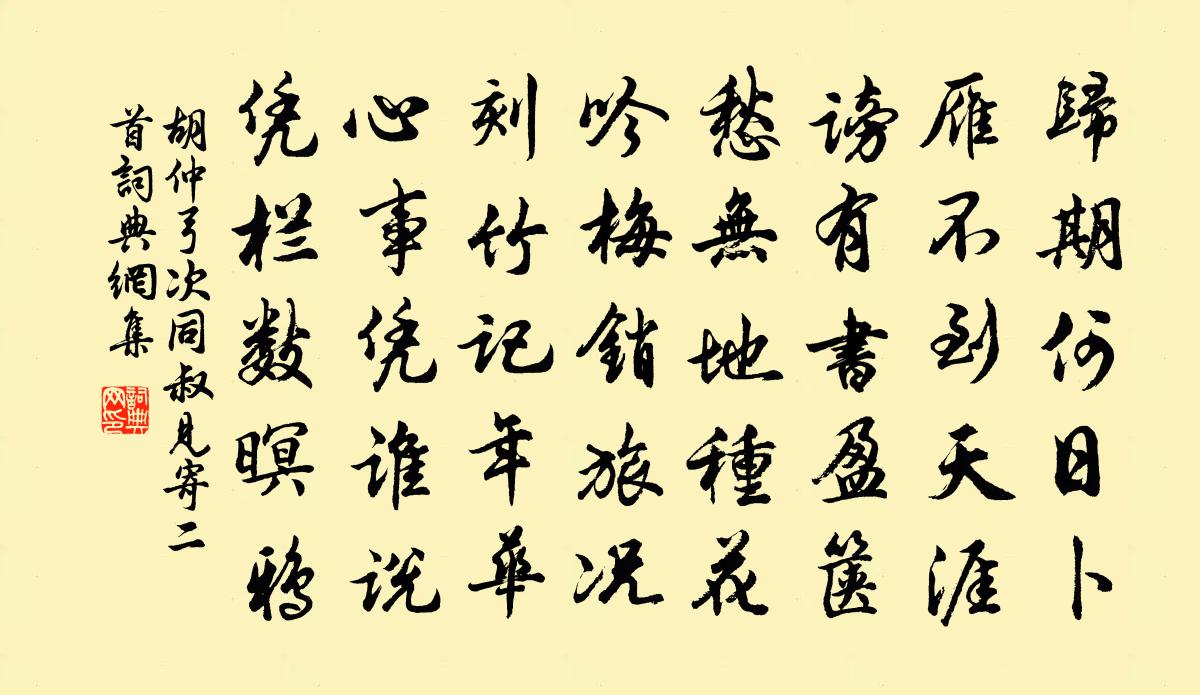 歸期何日卜
雁不到天涯
謗有書盈篋
愁無地種花
吟梅銷旅況
刻竹記年華
心事凭誰説
凭栏數暝鴉
胡仲弓次同叔見寄二
首詞典網集
詞典
网印